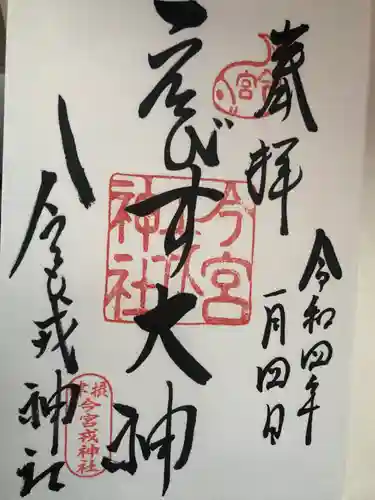 拝
令和四年
一月四日
今宮
ゑびす大神
今宮
戎
神社
今宮戎神社
摂津
今宮戎神社